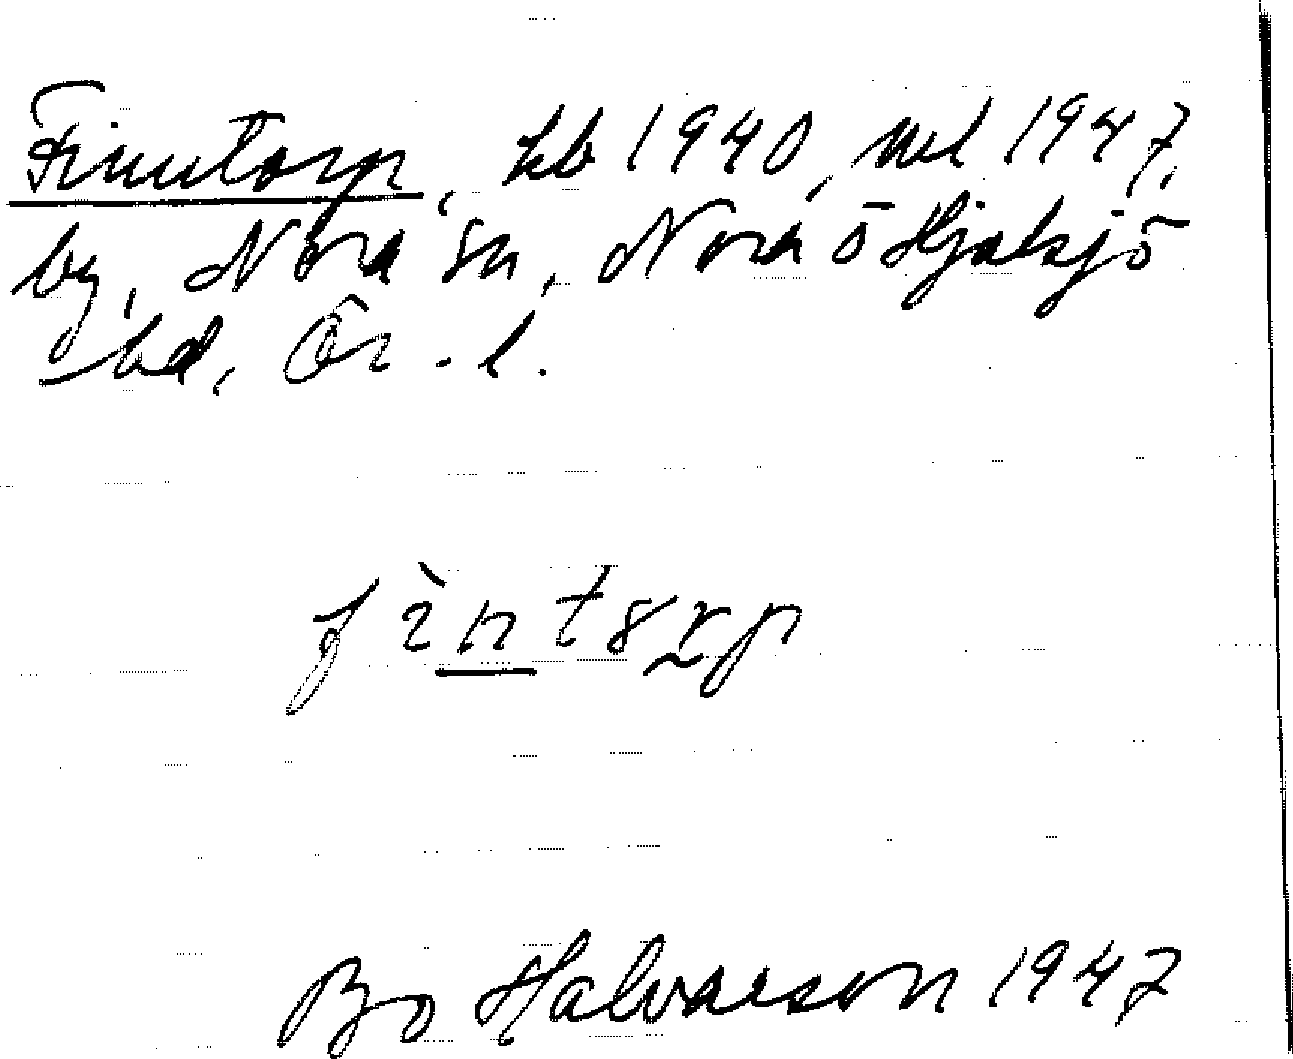 Finntorp, kb 1940, ml 1947,
by, Nora sn, Nora ö Hjulsjö
bd, Ör. l.
Bo Halvarson 1947